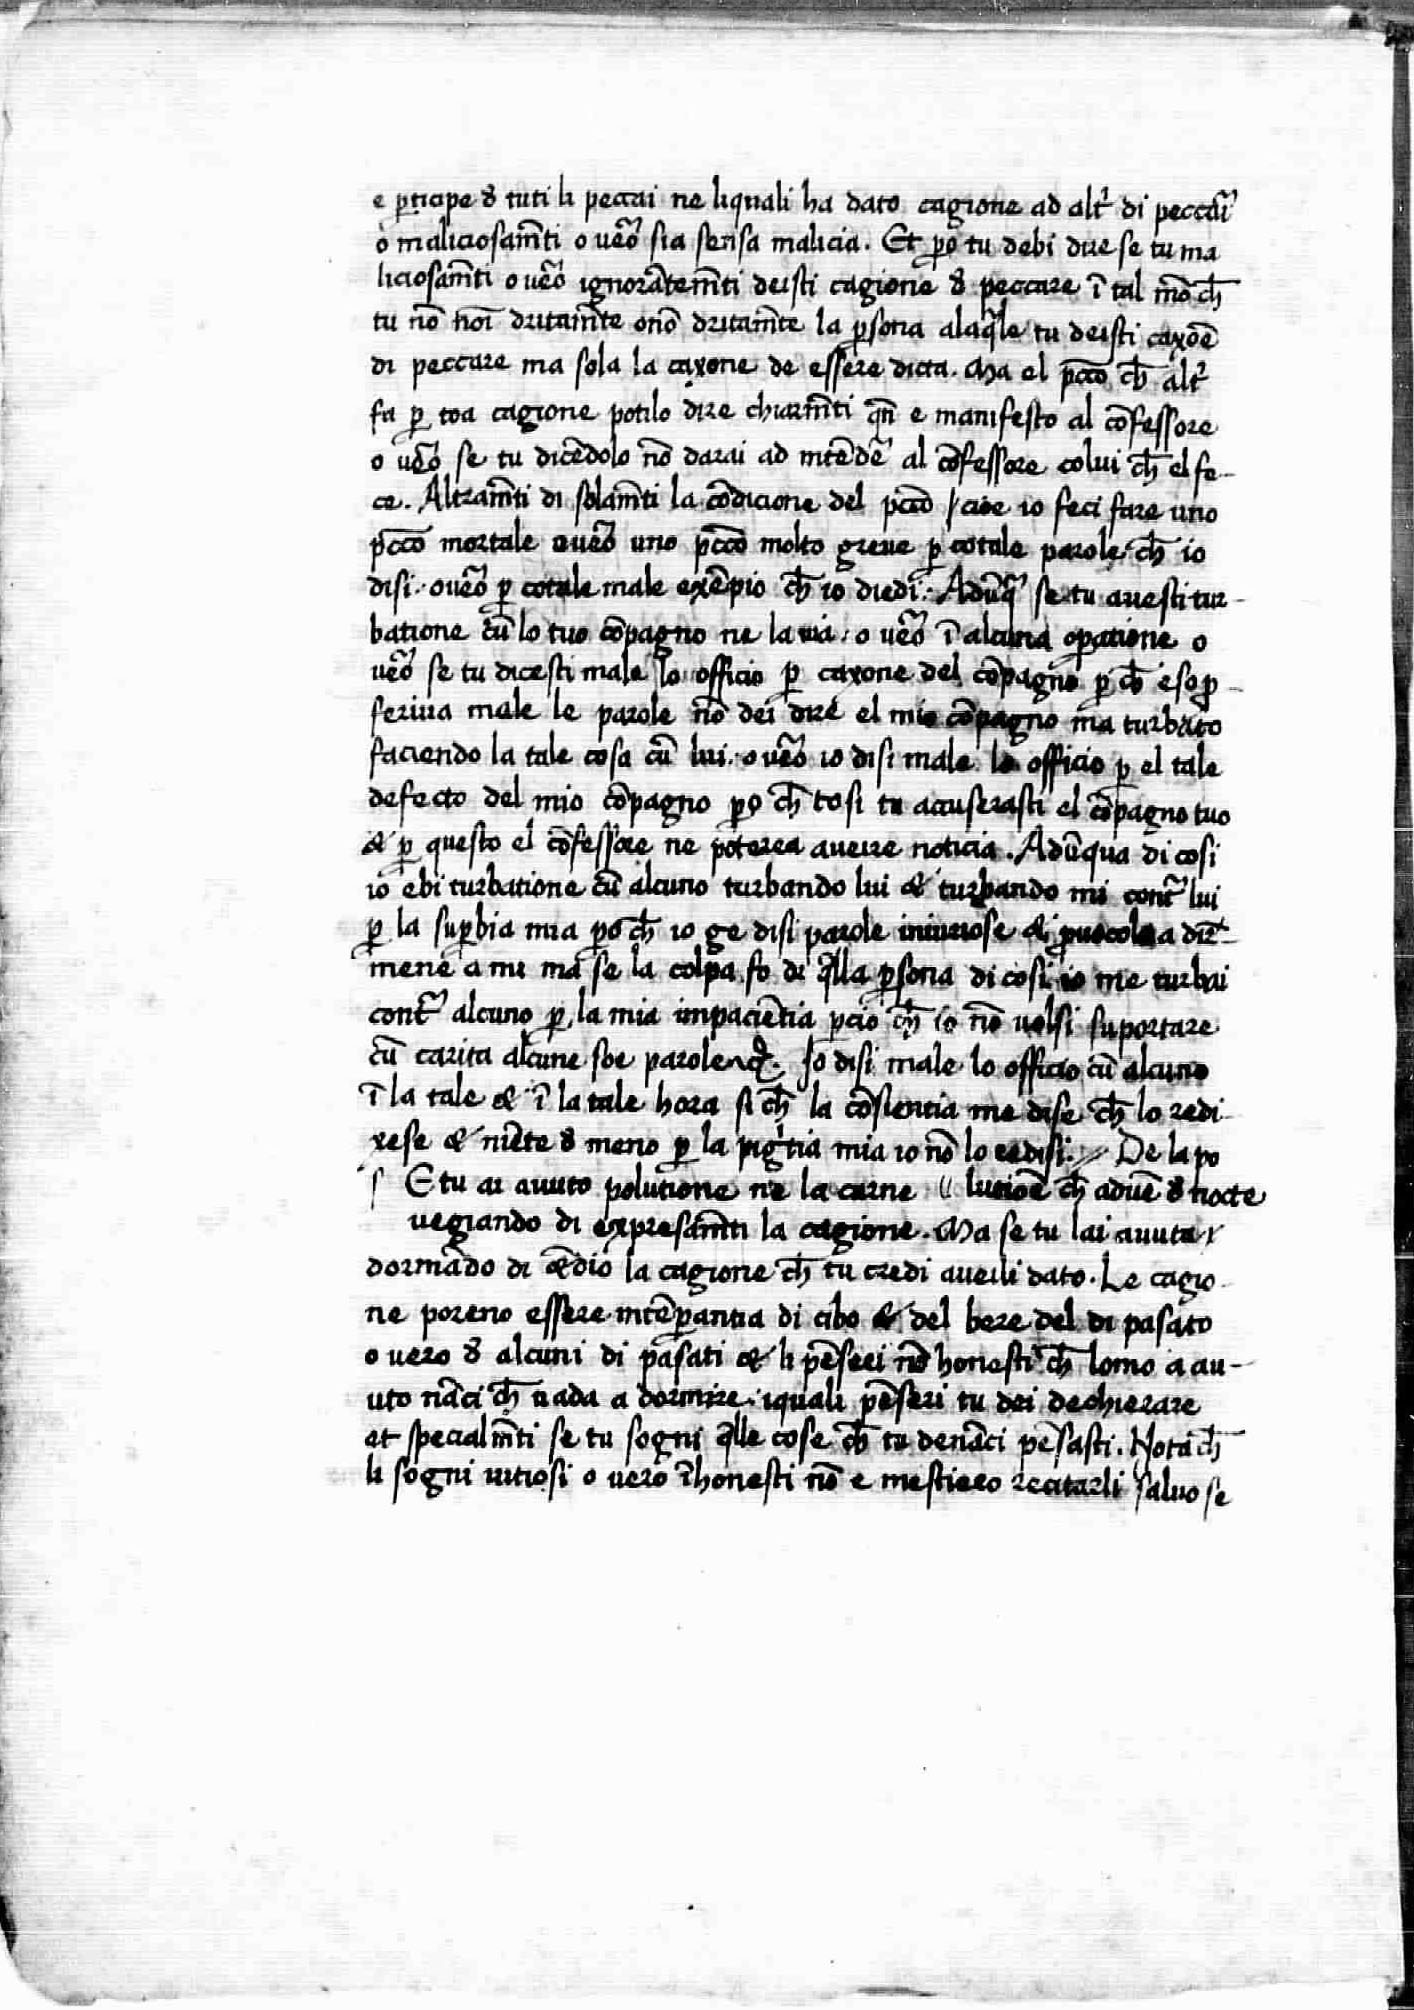 e ꝑticipe đ tuti li peccai ne liquali ha dato cagione ad altͬ di peccaͬi
o malicioſam̄ti o ueͬo ſia ſenſa malicia. Et ꝑo tu debi dire ſe tu ma
licioſam̄ti o ueͬo ignorātem̄ti deiſti cagione đ peccare ī tal mō cħ
tu nō noī dritam̄te o nō dritam̄te la ꝑſona alaq̄le tu deiſti caxōe
di peccare ma ſola la caxone de eſſere dicta. Ma el pc̄co cħ altͬ
fa ꝑ toa cagione potilo dire chiarm̄ti qn̄ e manifeſto al cōfeſſore
o ueͬo ſe tu dicēdolo nō darai ad intēdeͬ al cōfeſſore colui cħ el fe-
ce. Altram̄ti di ſolam̄ti la cōdicione del pc̄co / cioe io feci fare uno
pc̄co mortale oueͬo uno pc̄co molto greue ꝑ cotale parole cħ io
diſi. oueͬo ꝑ cotale male exēpio cħ io diedi. Adūqͣ ſe tu aueſti tur-
batione cū lo tuo cōpagno ne la uia. o ueͬo ī alcuna oꝑatione o
ueͬo ſe tu diceſti male lo officio ꝑ caxone del cōpagno ꝑ cħ eſo ꝓ-
feriua male le parole nō dei dire el mio cōpagno ma turbato
faciendo la tale coſa cū lui. o ueͬo io diſi male lo officio ꝑ el tale
defecto del mio cōpagno ꝑo cħ coſi tu accuſeraſti el cōpagno tuo
& ꝑ queſto el cōfeſſore ne poterea aueire noticia. Adūqua di coſi
io ebi turbatione cū alcuno turbando lui & turbando mi contͬ lui
ꝑ la ſuꝑbia mia ꝑo cħ io ge diſi parole iniurioſe & a dir-
mene a mi ma ſe la colpa fo di q̄lla ꝑſona di coſi io me turbai
contͬ alcuno ꝑ la mia impaciētia ꝑcio cħ io nō uolſi ſuportare
cū carita alcune ſoe parole. Io diſi male lo officio cū alcuno
ī la tale & ī la tale hora ſi cħ la cōſientia me diſe cħ lo redi
xeſe & niēte đ meno ꝑ la pigͥtia mia io nō lo rediſi. De la po
ſ Etu ai auuto polutione ne la carne // lutiōe cħ aduē đ nocte
uegiando di expreſam̄ti la cagione. Ma ſe tu lai auuta
dormādo di la cagione cħ tu credi aueili dato. Le cagio-
ne poreno eſſere intēꝑantia di cibo & del bere del di paſato
o uero đ alcuni di paſati & li pēſeri nō honeſti cħ lomo a au-
uto nāci cħ uada a dormire. iquali pēſeri tu dei dechierare
et ſpecialm̄ti ſe tu ſogni q̄lle coſe cħ tu denāci pēſaſti. Nota cħ
li ſogni uitioſi o uero īhoneſti nō e meſtiero recitarli ſaluo ſe